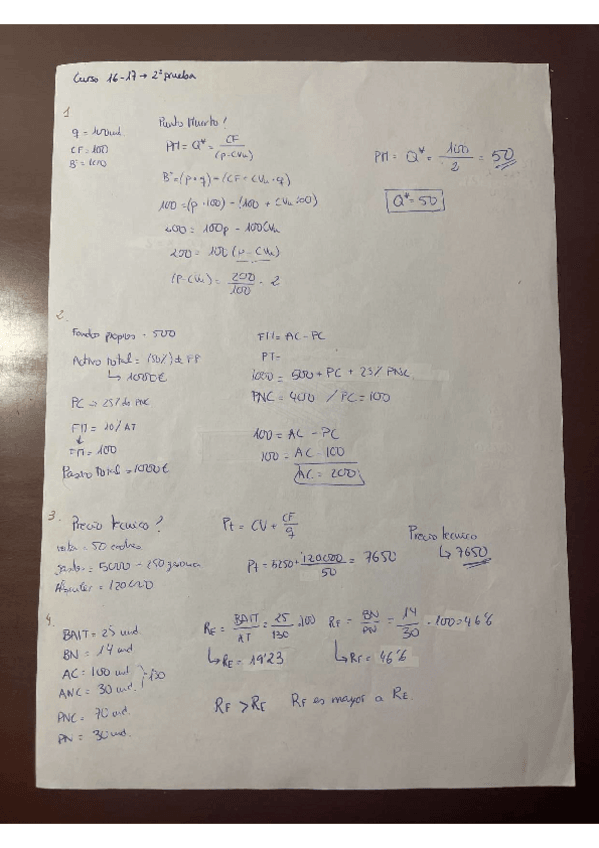 Curso 16-17 → 2ª prueba
1
q = 100 ud.
CF = 100
Bº = 100
Punto Muerto!
PM = Q* = CF / (p - CVu)
Bº = (p · q) - (CF + CVu · q)
100 = (p · 100) - (100 + CVu 100)
200 = 100p - 100CVu
200 = 100 (p - CVu)
(p - CVu) = 200 / 100 = 2
PM = Q* = 100 / 2 = 50
Q* = 50
2.
Fondos propios = 500
Activo total = (50%) de FP
↳ 1000€
PC → 25% de PNC
FM = 10% AT
↓
FM = 100
Pasivo total = 1000€
FM = AC - PC
PT =
1000 = 500 + PC + 25% PNC
PNC = 400 / PC = 100
100 = AC - PC
100 = AC - 100
AC = 200
3. Precio tecnico?
= 50 coches
= 5000 - 250
= 120000
Pt = CV + CF / q
Pt = 5250 + 120000 / 50 = 7650
Precio tecnico
↳ 7650
4.
BAIT = 25 und
BN = 14 und
AC = 100 und
ANC = 30 und. } 130
PNC = 70 und.
PN = 30 und.
RE = BAIT / AT = 25 / 130 · 100
↳ RE = 19'23
RF = BN / PN = 14 / 30 · 100 = 46'6
↳ RF = 46'6
RF > RE RF es mayor a RE.